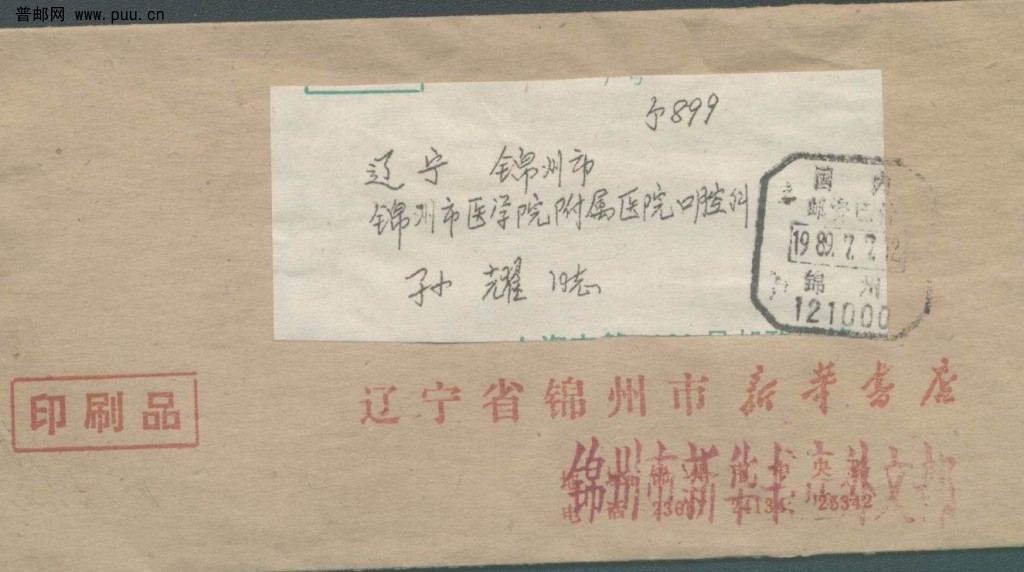 普邮网 www.puu.cn
予899
辽宁 锦州市
锦州市医学院附属医院口腔科
孙耀同志
国内
邮资已付
1989.7.7.12
锦州
121000
印刷品
辽宁省锦州市新华书店
锦州市新华书店
电话